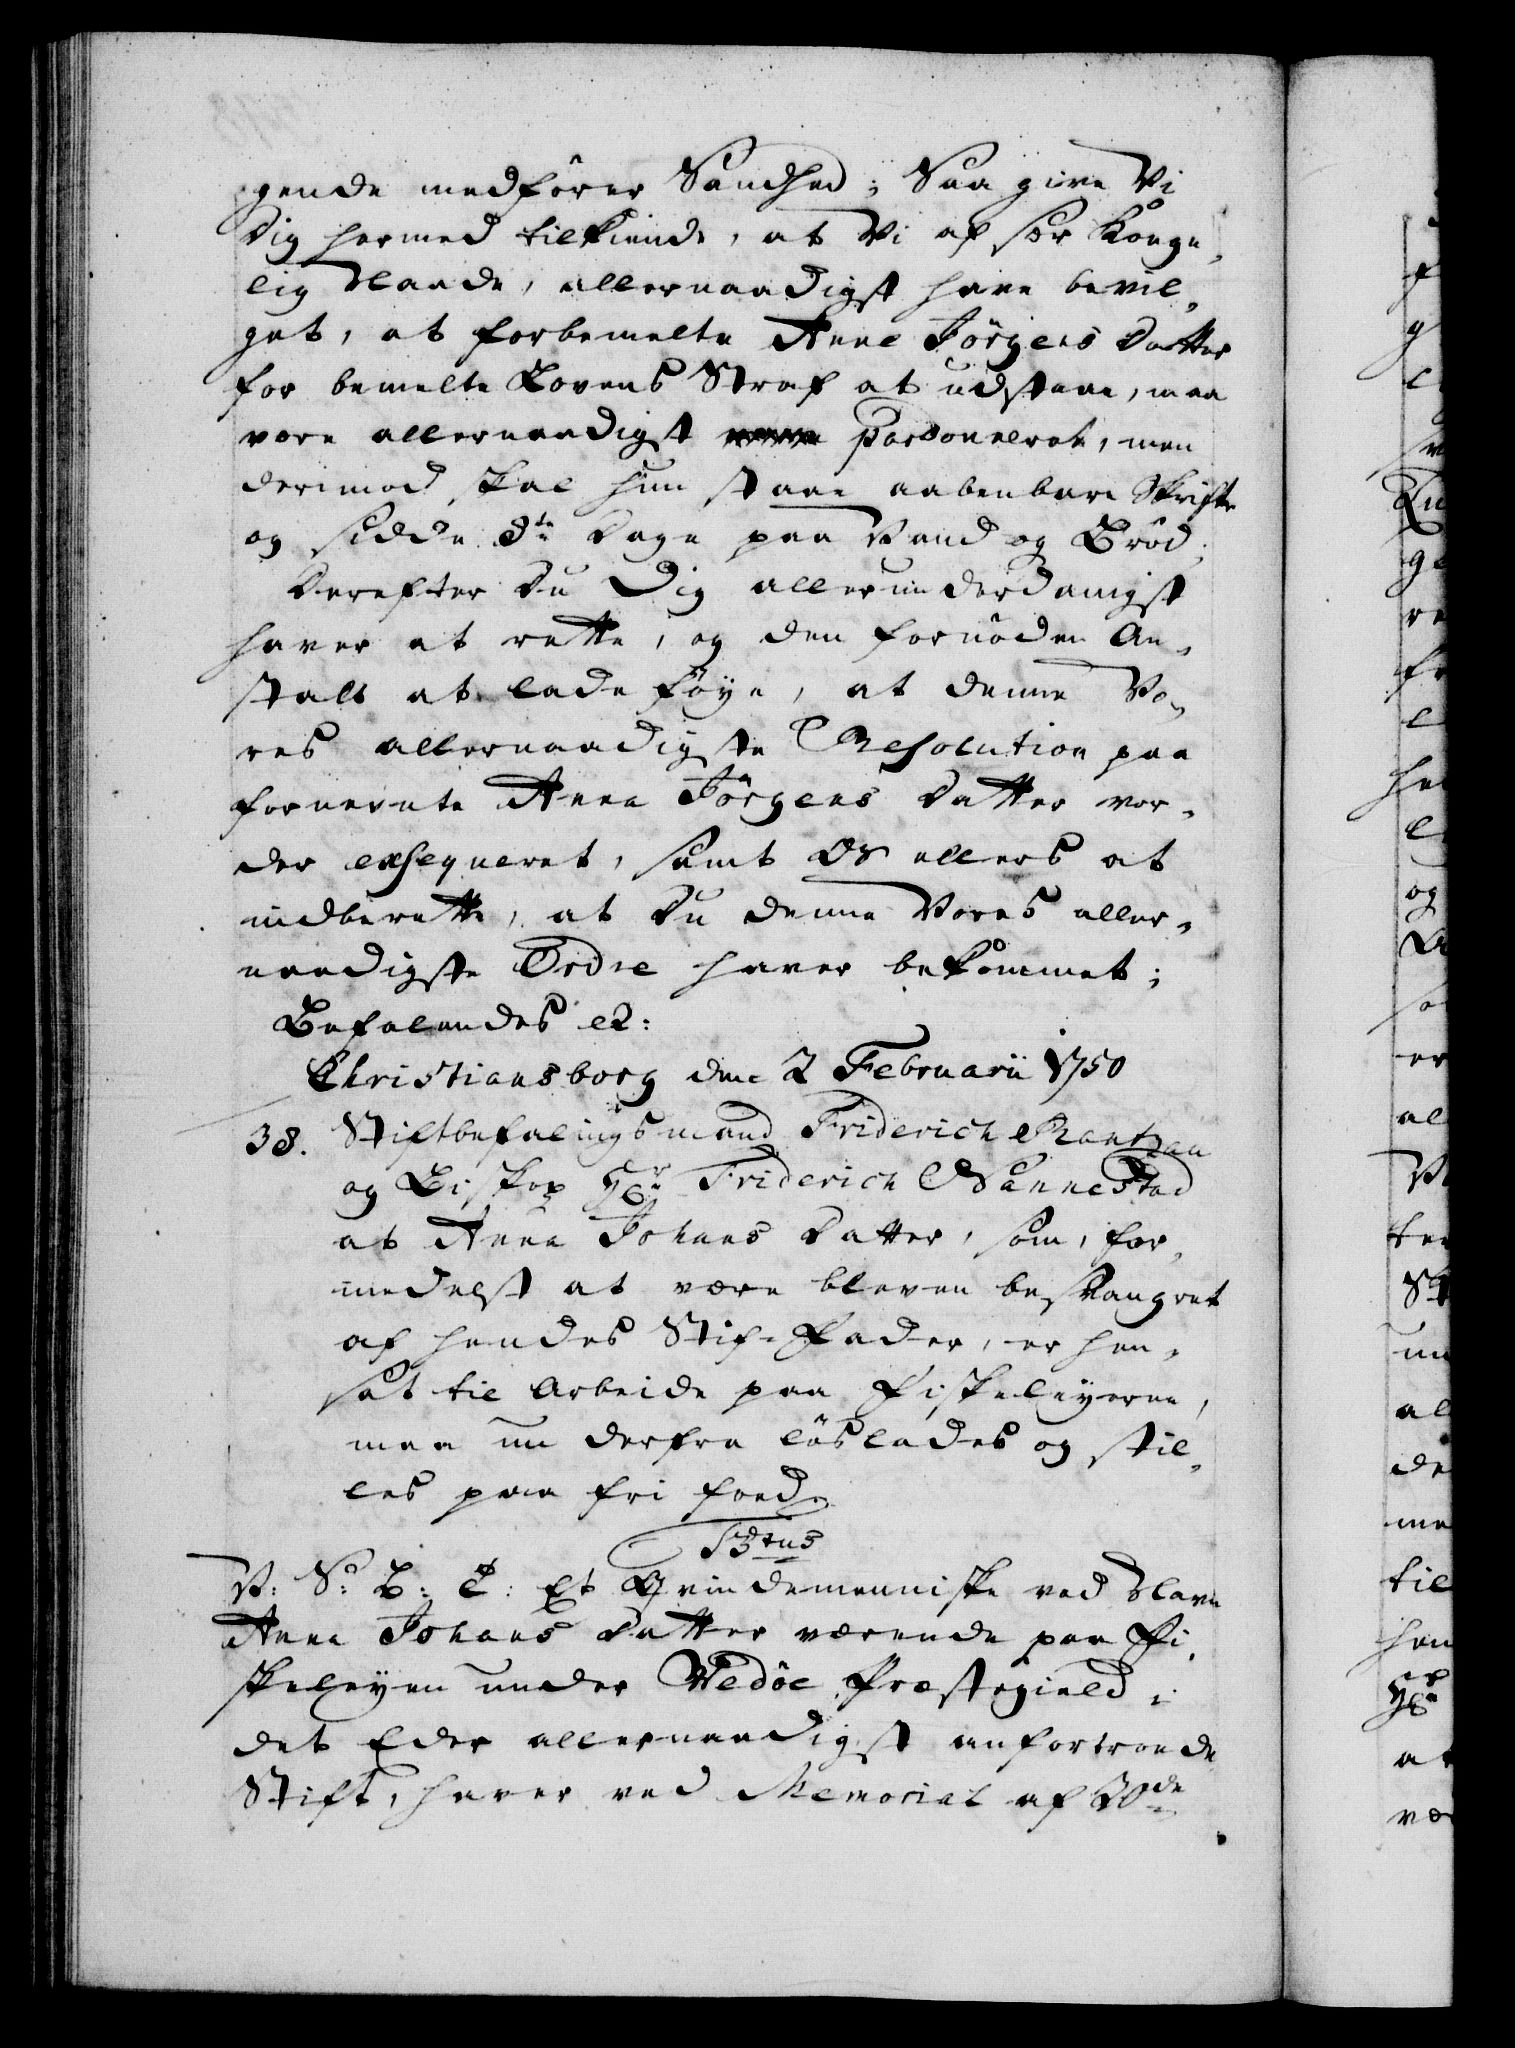 gende medfører Sandhed; Saa give Vi
Dig hermed tilkiende, at Vi af sær Konge,
lig Naade, allernaadigst have bevil,
get, at forbemelte Anne Jörgens Datter
for bemelte Lovens Straf at udstaae, maa
være allernaadigst Pardonneret, men
derimod skal hun staae aabenbare Skrifte
og sidde 8te Dage paa Vand og Bröd;
Derefter Du Dig allerunderdanigst
haver at rette, og den fornöden An,
stalt at lade föye, at denne Vo,
res allernaadigste Resolution paa
fornevnte Anne Jörgens Datter vor,
der exseqveret, samt Os ellers at
indberette, at Du denne Vores aller,
naadigste Ordre haver bekommet;
Befalendes etc:
Christiansborg den 2 Februarii 1750
38. Stiftbefalingsmand Friderich Rantzau
og Biskop Hr: Friderich Nannestad
at Anne Johans Datter, som, for,
medelst at være bleven besvangret
af hendes Stif-Fader, er hen,
sat til Arbeide paa Fiskeleyerne,
maa nu derfra löslades og stil,
les paa fri foed.
V: S: B: T: Et Qvindemenniske ved Navn
Anne Johans Datter værende paa Fi,
skeleyen under Vedöe Præstegield i
det Eder allernaadigst anfortroede
Stift, haver ved Memorial af 30de